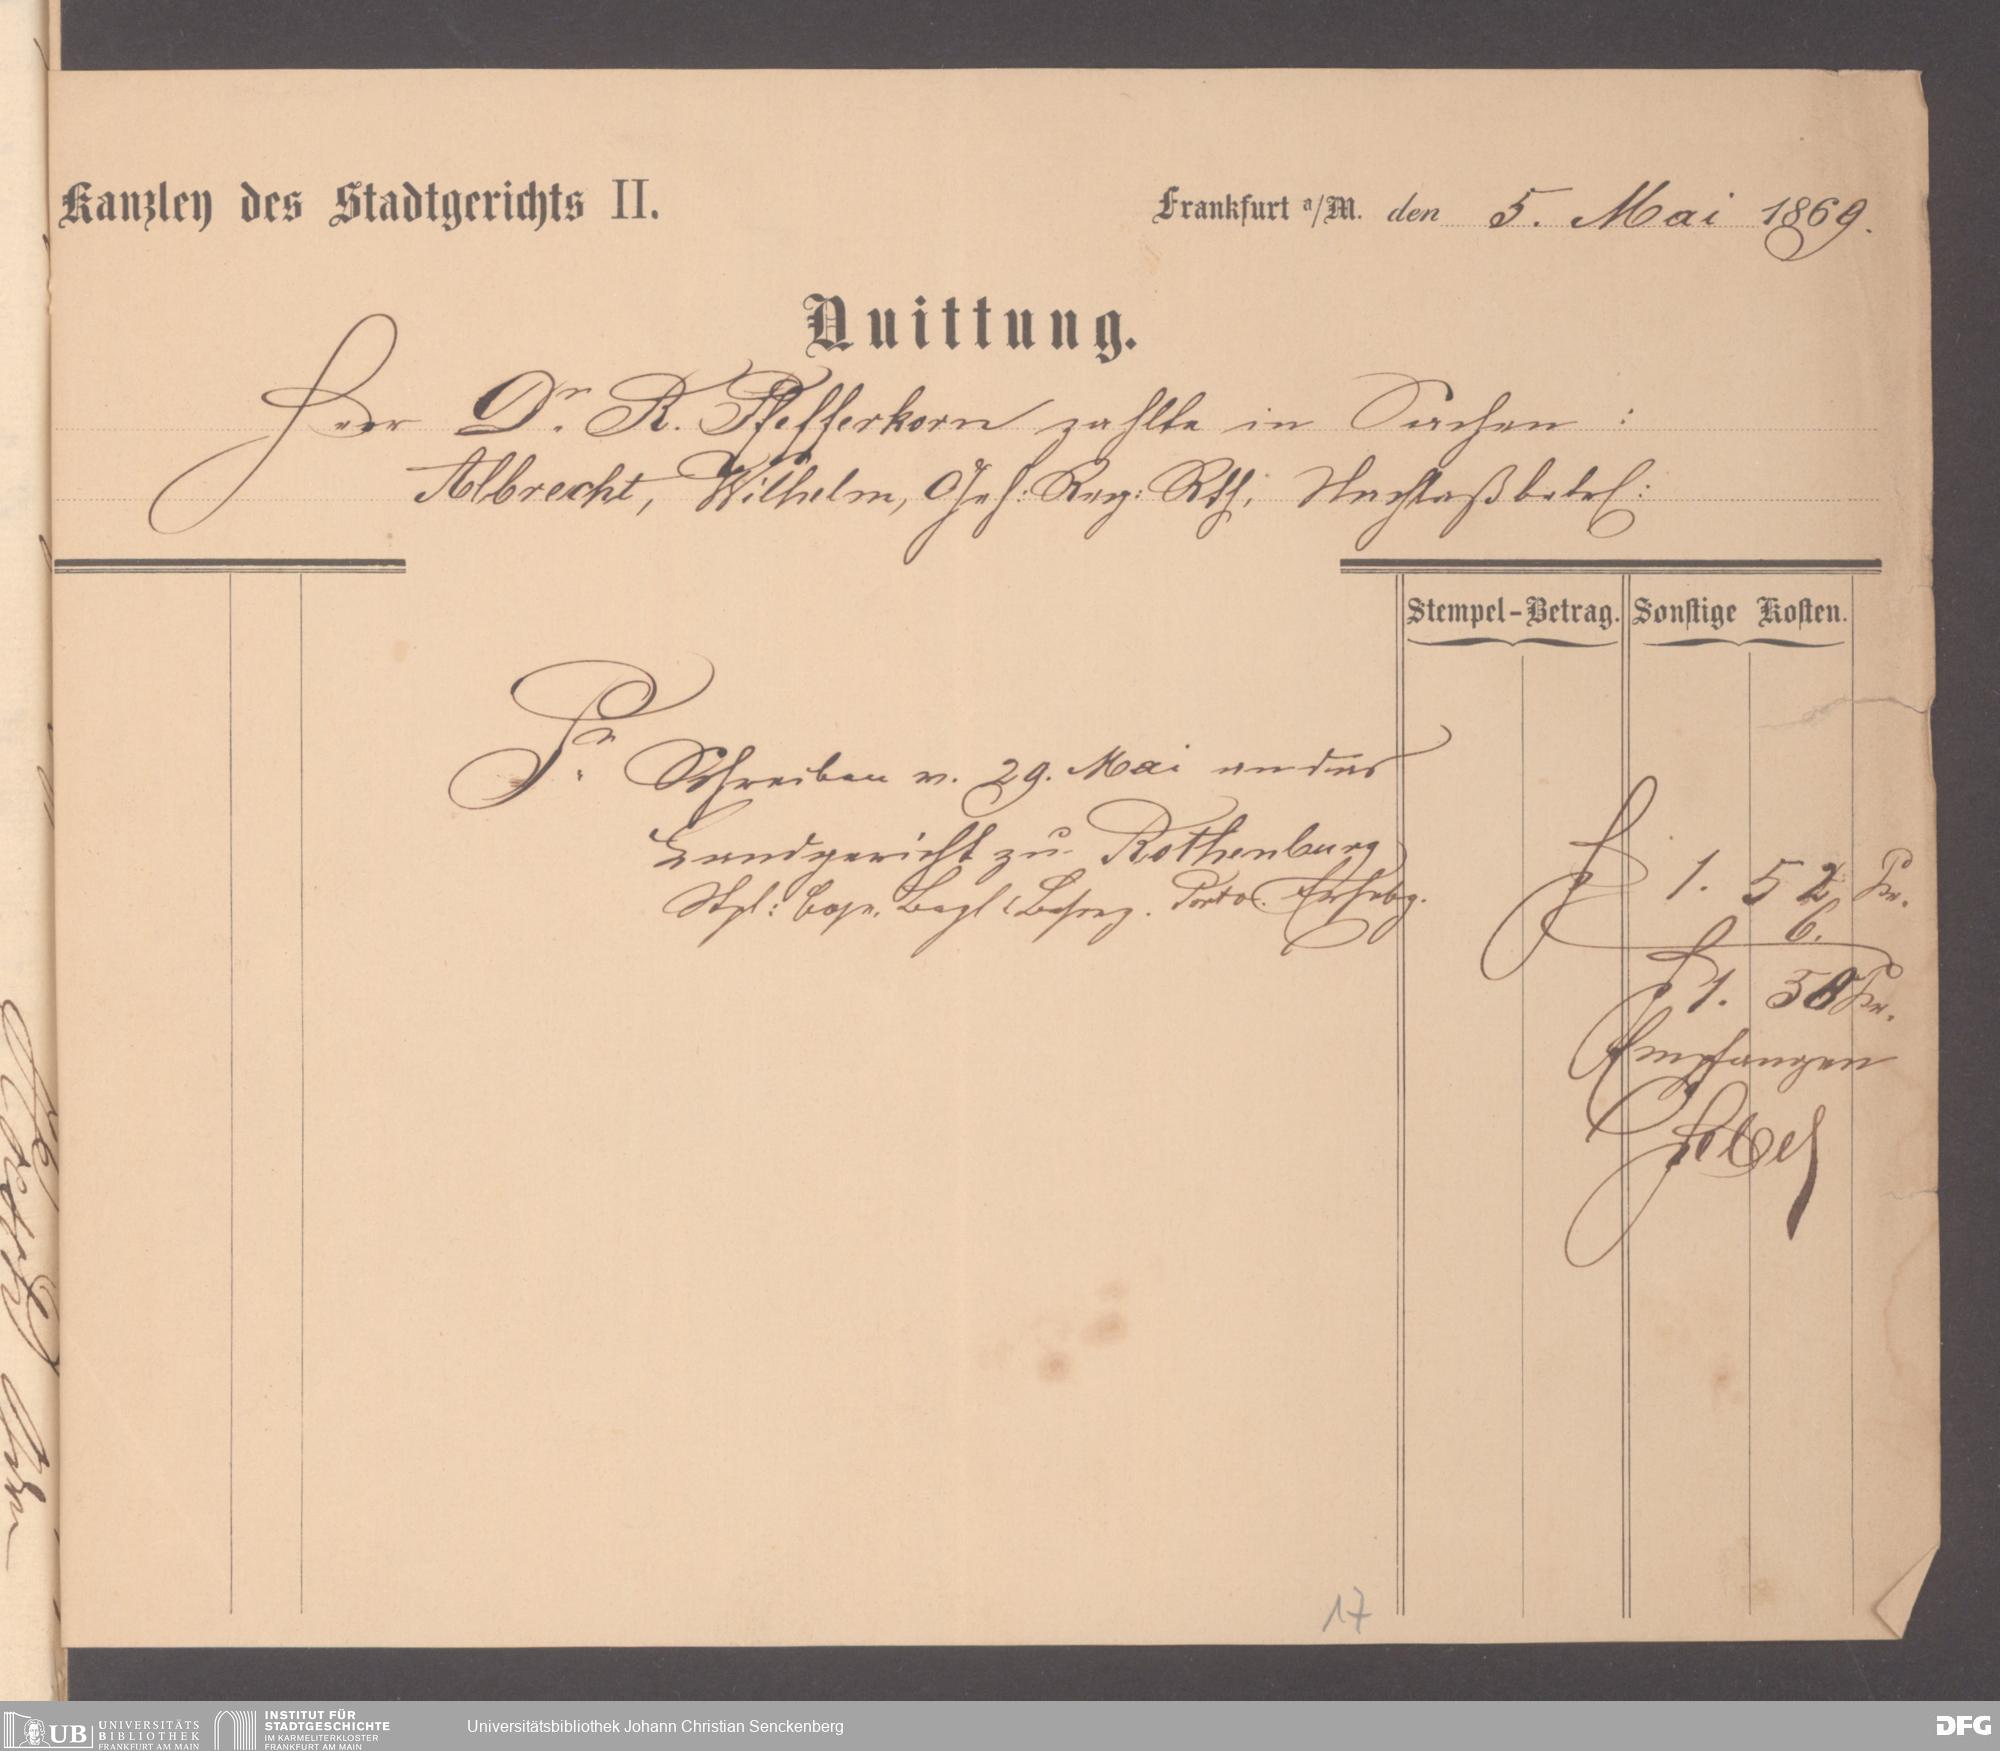 Kanzley des Stadtgerichts II.
Frankfurt a/M. den 5. Mai 1869.
Quittung.
Herr Dr. R. Pfefferkorn zahlte in Sachen:
Albrecht, Wilhelm, Geh: Reg: Rth, Nachlaß betrf:
Stempel-Betrag. Sonstige Kosten.
Fr. Schreiben v. 29. Mai an das
Landgericht zu Rothenburg
Stpl: Cop. Porto.
f 1. 52 Kr.
6.
f 1. 58 Kr.
Empfangen
17
UB UNIVERSITÄTS
BIBLIOTHEK
FRANKFURT AM MAIN
INSTITUT FÜR
STADTGESCHICHTE
IM KARMELITERKLOSTER
FRANKFURT AM MAIN
Universitätsbibliothek Johann Christian Senckenberg
DFG